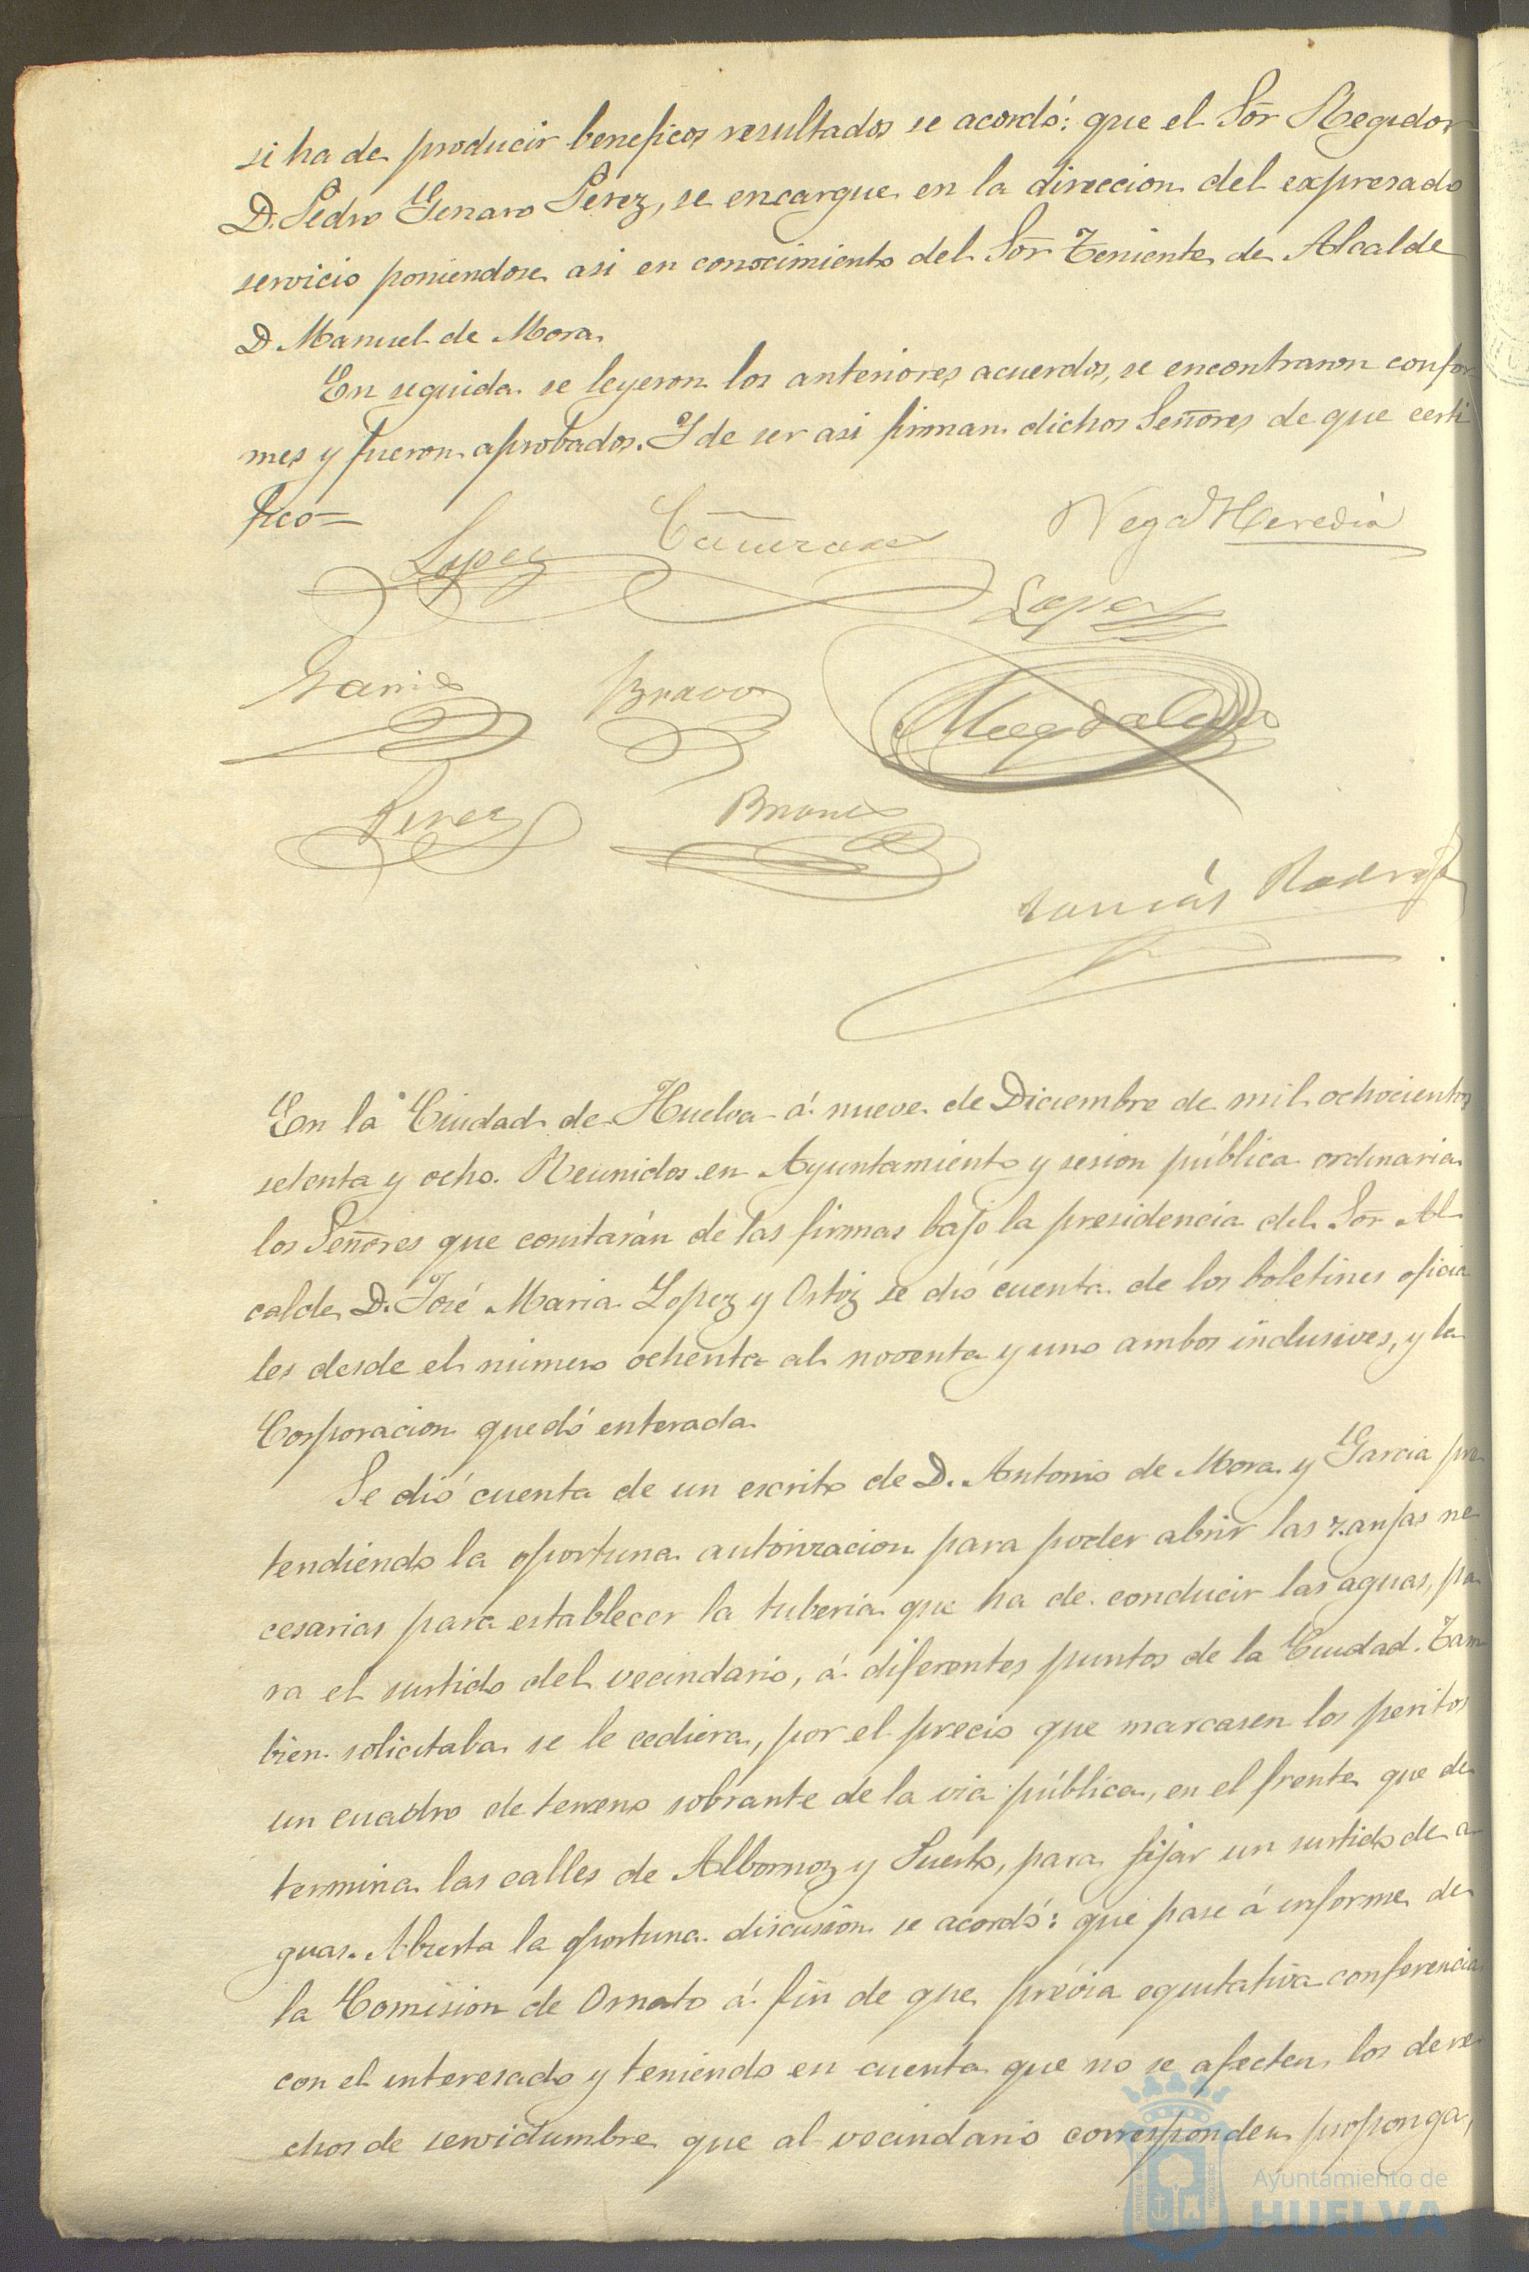 si ha de producir beneficos resultados se acordó: que el Sõr Regidor
D. Pedro Genaro Perez, se encargue en la direccion del expresado
servicio poniendose asi en conocimiento del Sõr Teniente de Alcalde
D. Manuel de Mora.
En seguida se leyeron los anteriores acuerdos, se encontraron confor
mes y fueron aprobados. Y de ser asi firman dichos Señores de que certi
fico=
Lopez
Vega Heredia
Lopez
Garrido
Bravo
Magdaleno
Perez
Tomás Rodrig
En la Ciudad de Huelva á nueve de Diciembre de mil ochocientos
setenta y ocho. Reunidos en Ayuntamiento y sesion pública ordinaria
los Señores que constarán de las firmas bajo la presidencia del Sõr Al
calde D. José Maria Lopez y Ortiz se dió cuenta de los boletines oficia
les desde el número ochenta al noventa y uno ambos inclusives, y la
Corporacion quedó enterada.
Se dió cuenta de un escrito de D. Antonio de Mora y Garcia pre
tendiendo la oportuna autorizacion para poder abrir las zanjas ne
cesarias para establecer la tuberia que ha de conducir las aguas, pa
ra el surtido del vecindario, á diferentes puntos de la Ciudad. Tam
bien solicitaba se le cediera, por el precio que marcasen los peritos
un cuadro de terreno sobrante de la via pública, en el frente que de
termina las calles de Albornoz y Puerto, para fijar un surtido de a
guas. Abierta la oportuna discusion se acordó: que pase á informe de
la Comision de Ornato á fin de que prévia equitativa conferencia
con el interesado y teniendo en cuenta que no se afecten los dere
chos de servidumbre que al vecindario corresponden proponga,
Ayuntamiento de
HUELVA